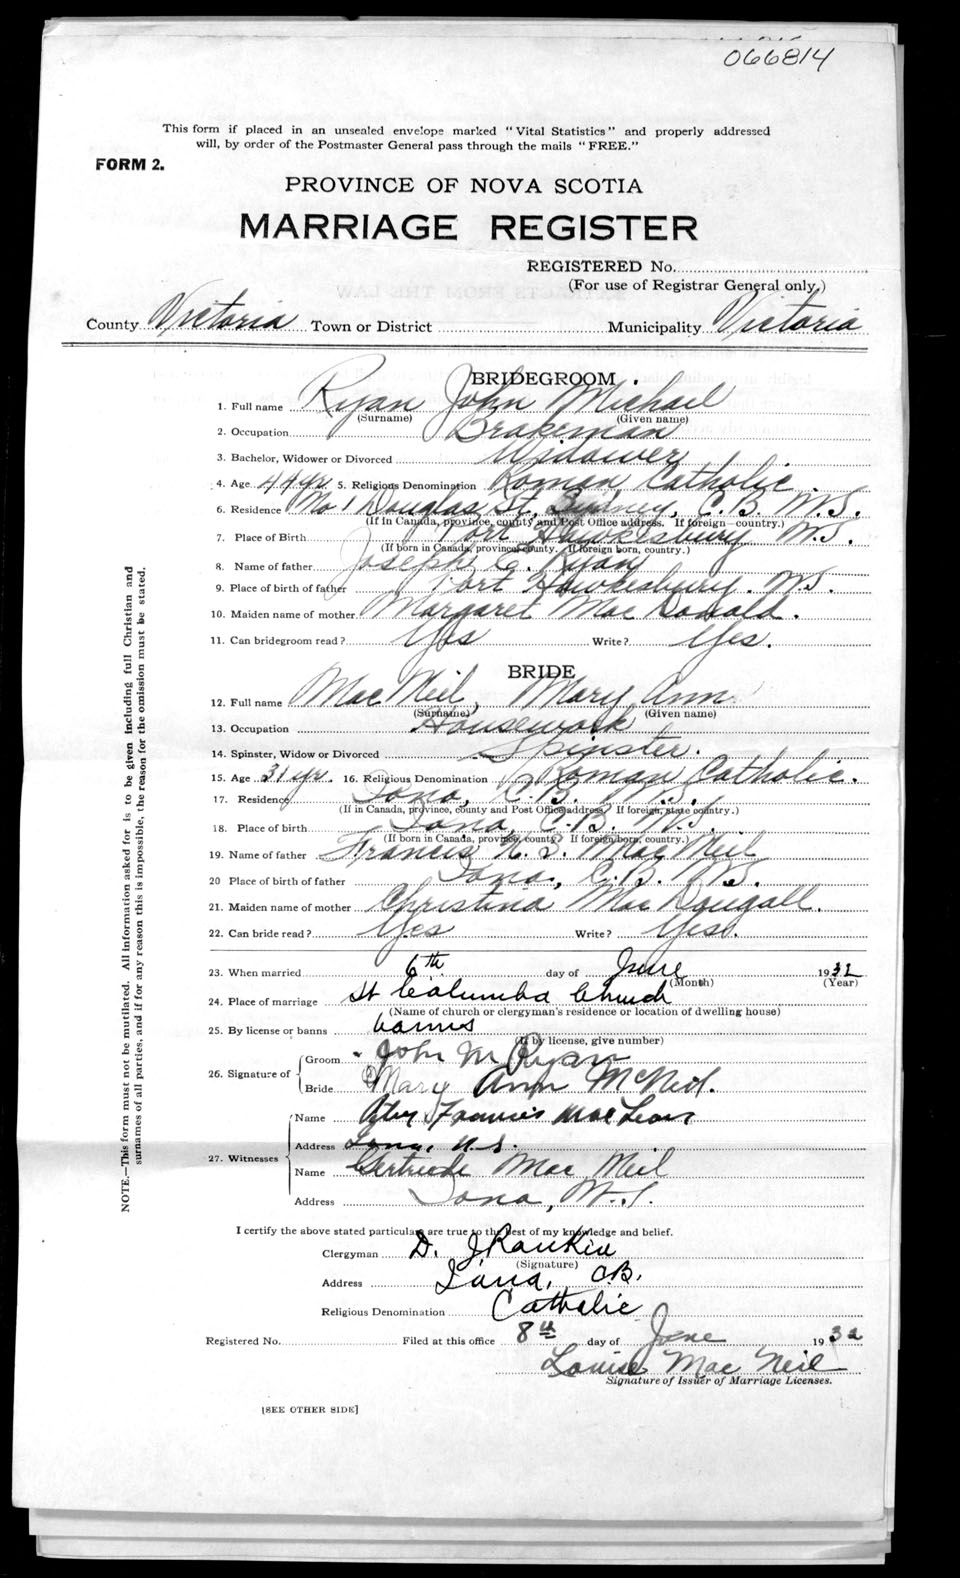 066814
This form if placed in an unsealed envelope marked "Vital Statistics" and properly addressed
will, by order of the Postmaster General pass through the mails "FREE."
FORM 2.
PROVINCE OF NOVA SCOTIA
MARRIAGE REGISTER
REGISTERED No.
(For use of Registrar General only.)
County Victoria Town or District Municipality Victoria
BRIDEGROOM
1. Full name Ryan John Michael
(Surname) (Given name)
2. Occupation Brakeman
3. Bachelor, Widower or Divorced Widower
4. Age 44 yr. 5. Religious Denomination Roman Catholic.
6. Residence No 1 Douglas St., Sydney, C.B. N.S.
(If in Canada, province, county and Post Office address. If foreign—country.)
7. Place of Birth Port Hawkesbury N.S.
(If born in Canada, province, county. If foreign born, country.)
8. Name of father Joseph C. Ryan
9. Place of birth of father Port Hawkesbury. N.S.
10. Maiden name of mother Margaret Mac Donald.
11. Can bridegroom read? Yes Write? Yes.
BRIDE
12. Full name Mac Neil, Mary Ann
(Surname) (Given name)
13. Occupation Housework
14. Spinster, Widow or Divorced Spinster.
15. Age 31 yr. 16. Religious Denomination Roman Catholic.
17. Residence Iona, C.B. N.S.
(If in Canada, province, county and Post Office address. If foreign, state country.)
18. Place of birth Iona, C.B. N.S.
(If born in Canada, province, county? If foreign born, country.)
19. Name of father Francis Mac Neil
20 Place of birth of father Iona, C.B. N.S.
21. Maiden name of mother Christina Mac Dougall.
22. Can bride read? Yes Write? Yes.
23. When married 6th day of June 1932
(Month) (Year)
24. Place of marriage St Columba Church
(Name of church or clergyman's residence or location of dwelling house)
25. By license or banns banns
(If by license, give number)
26. Signature of Groom John M Ryan
Bride Mary Ann McNeil.
27. Witnesses Name Francis Mac Lean
Address Iona, N.S.
Name Gertrude Mac Neil
Address Iona, N.S.
I certify the above stated particulars are true to the best of my knowledge and belief.
Clergyman D. J Rankin
(Signature)
Address Iona, C.B.
Religious Denomination Catholic
Registered No. Filed at this office 8th day of June 1932
Louise Mac Neil
Signature of Issuer of Marriage Licenses.
[SEE OTHER SIDE]
NOTE.—This form must not be mutilated. All information asked for is to be given including full Christian and
surnames of all parties, and if for any reason this is impossible, the reason for the omission must be stated.